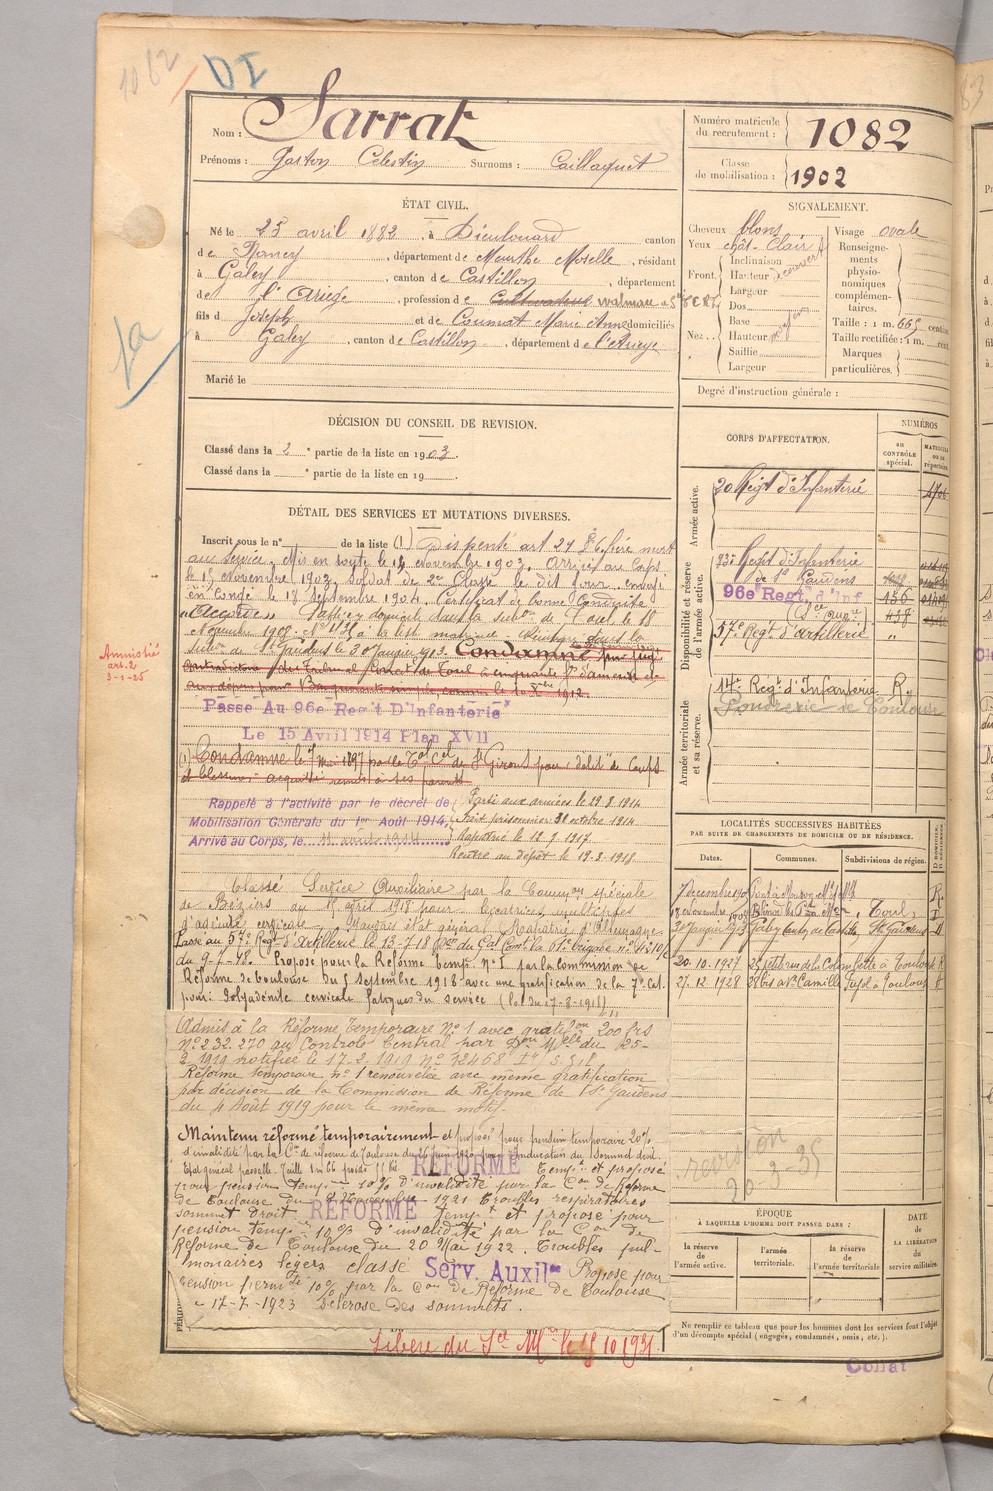 1082
DI
Nom : Sarrat
Prénoms : Gaston Celestin Surnoms : Caillaquet
Numéro matricule du recrutement : 1082
Classe de mobilisation : 1902
ÉTAT CIVIL.
Né le 25 avril 1882, à Dieulouard canton
de Nancy, département de Meurthe Moselle, résidant
à Galey, canton de Castillon, département
de l'Ariège, profession de Cultivateur
fils d Joseph et de Coumat Marie Anne domiciliés
à Galey, canton de Castillon, département de l'Ariege
Marié le
SIGNALEMENT.
Cheveux blons Visage ovale
Yeux chât-Clair Renseignements physionomiques complémentaires.
Front. Inclinaison
Hauteur découvert
Largeur
Nez. Dos
Base
Hauteur moyen
Saillie
Largeur
Taille : 1 m. 66 centim
Taille rectifiée : 1 m. cent.
Marques particulières.
Degré d'instruction générale :
DÉCISION DU CONSEIL DE REVISION.
Classé dans la 2e partie de la liste en 1903.
Classé dans la e partie de la liste en 19
DÉTAIL DES SERVICES ET MUTATIONS DIVERSES.
Inscrit sous le n° de la liste (1) Dispensé art 21
au service. Mis en route le 14 Novembre 1903. Arrivé au Corps
le 15 Novembre 1903, Soldat de 2e Classe le dit jour. envoyé
en Congé le 18 Septembre 1904. Certificat de bonne Conduite
"Accordé" Passé domicilié dans la subon de Toul le 18
Novembre 1908
Subon de St Gaudens le 30 Janvier 1913. Condamné
Amnistié
art. 2
3-1-25
Passé Au 96e Regit D'Infanterie
Le 15 Avril 1914 Plan XVII
(1) Condamné le 7 Mai 1897 par le Tal Cel de St Girons pour : délit de Coups
et blessures acquitté remis à ses parents
Rappelé à l'activité par le décret de
Mobilisation Générale du 1er Août 1914,
Arrivé au Corps, le 11 août 1914
Parti aux armées le 29.8.1914
Fait prisonnier 30 octobre 1914
Rapatrié le 12.9.1917
Rentré au dépôt le 19.3.1918
Classé Service Auxiliaire par la Common spéciale
de Béziers du 15 avril 1918 pour : cicatrices multiples
d'adénite cervicale. Mauvais état général. Rapatrié d'Allemagne
Passé au 57e Regt d'Artillerie le 13-7-18
du 9-7-18. Proposé pour la Réforme Temp. N° 1 par la commission de
Réforme de Toulouse du 5 septembre 1918 avec une gratification de la 7e Cat.
pour : Polyadénite cervicale fatigues du service
Admis à la Réforme Temporaire N° 1 avec gratifon 200 frs
N° 232.270 au Contrôle Central par Don Melle du 25-
2 1919 notifiée le 17-2-1919 N° 12468
Réforme temporaire n° 1 renouvelée avec même gratification
par décision de la Commission de Réforme de St Gaudens
du 4 Août 1919 pour le même motif.
Maintenu réformé temporairement et proposé pour pension temporaire 20%
d'invalidité par la Con de réforme de Toulouse
RÉFORMÉ Tempt et proposé
pour pension tempre 10% d'invalidité par la Con de Réforme
de Toulouse du 9 Novembre 1921 Troubles respiratoires
sommet droit RÉFORMÉ Tempt et proposé pour
pension tempre 10% d'invalidité par la Con de
Réforme de Toulouse du 20 Mai 1922. Troubles pul-
monaires légers classé Serv. Auxilre Proposé pour
pension permte 10% par la Con de Réforme de Toulouse
17-7-1923 Sclérose des sommets.
Libéré du Sce Mre le 15 10 1931
CORPS D'AFFECTATION.
NUMÉROS
au CONTRÔLE spécial.
MATRICULE OU DE répertoire.
Armée active.
20 Régt d'Infanterie
Disponibilité et réserve de l'armée active.
Regt d'Infanterie
de St Gaudens
96e Regt d'Inf 156
(Sce Auxre) 438
57e Regt d'artillerie "
Armée territoriale et sa réserve.
14e Régt d'Infanterie R
Poudrerie de Toulouse
LOCALITÉS SUCCESSIVES HABITÉES
PAR SUITE DE CHANGEMENTS DE DOMICILE OU DE RÉSIDENCE.
Dates. Communes. Subdivisions de région. D DOMICILE R RÉSIDENCE
7 décembre Pont à Mousson R
18 Novembre 1908 Toul D
30 Janvier 1913 Galey Canton de Castillon St Gaudens D
20.10.1927 25 petite rue de la Colombette à Toulouse R
27.12.1928 22 bis av. Camille Pujol à Toulouse R
revision
20-3-35
ÉPOQUE
À LAQUELLE L'HOMME DOIT PASSER DANS :
la réserve de l'armée active.
l'armée territoriale.
la réserve de l'armée territoriale
DATE de LA LIBÉRATION du service militaire.
Ne remplir ce tableau que pour les hommes dont les services font l'objet
d'un décompte spécial (engagés, condamnés, omis, etc.).